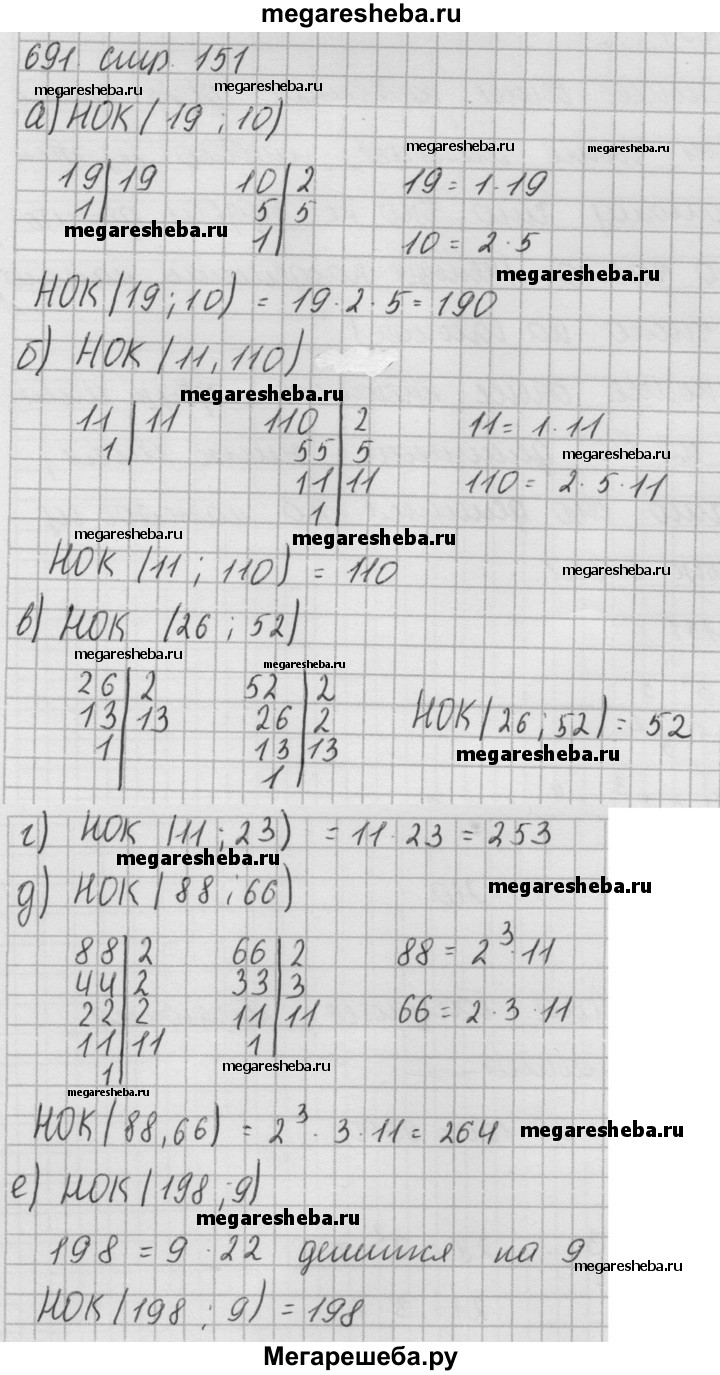 megaresheba.ru
691 стр. 151
megaresheba.ru megaresheba.ru
а) НОК (19 ; 10)
megaresheba.ru megaresheba.ru
19 | 19 10 | 2 19 = 1 · 19
1 | 5 | 5
megaresheba.ru 1 | 10 = 2 · 5
megaresheba.ru
НОК (19 ; 10) = 19 · 2 · 5 = 190
б) НОК (11, 110)
megaresheba.ru
11 | 11 110 | 2 11 = 1 · 11
1 | 55 | 5 megaresheba.ru
11 | 11 110 = 2 · 5 · 11
1 |
megaresheba.ru megaresheba.ru
НОК (11 ; 110) = 110 megaresheba.ru
в) НОК (26 ; 52)
megaresheba.ru megaresheba.ru
26 | 2 52 | 2
13 | 13 26 | 2 НОК (26 ; 52) = 52
1 | 13 | 13 megaresheba.ru
1 |
г) НОК (11 ; 23) = 11 · 23 = 253
megaresheba.ru
д) НОК (88 ; 66) megaresheba.ru
88 | 2 66 | 2 88 = 2³ · 11
44 | 2 33 | 3
22 | 2 11 | 11 66 = 2 · 3 · 11
11 | 11 1 |
1 | megaresheba.ru
megaresheba.ru
НОК (88, 66) = 2³ · 3 · 11 = 264 megaresheba.ru
е) НОК (198 ; 9)
megaresheba.ru
198 = 9 · 22 делится на 9
megaresheba.ru
НОК (198 ; 9) = 198
Мегарешеба.ру